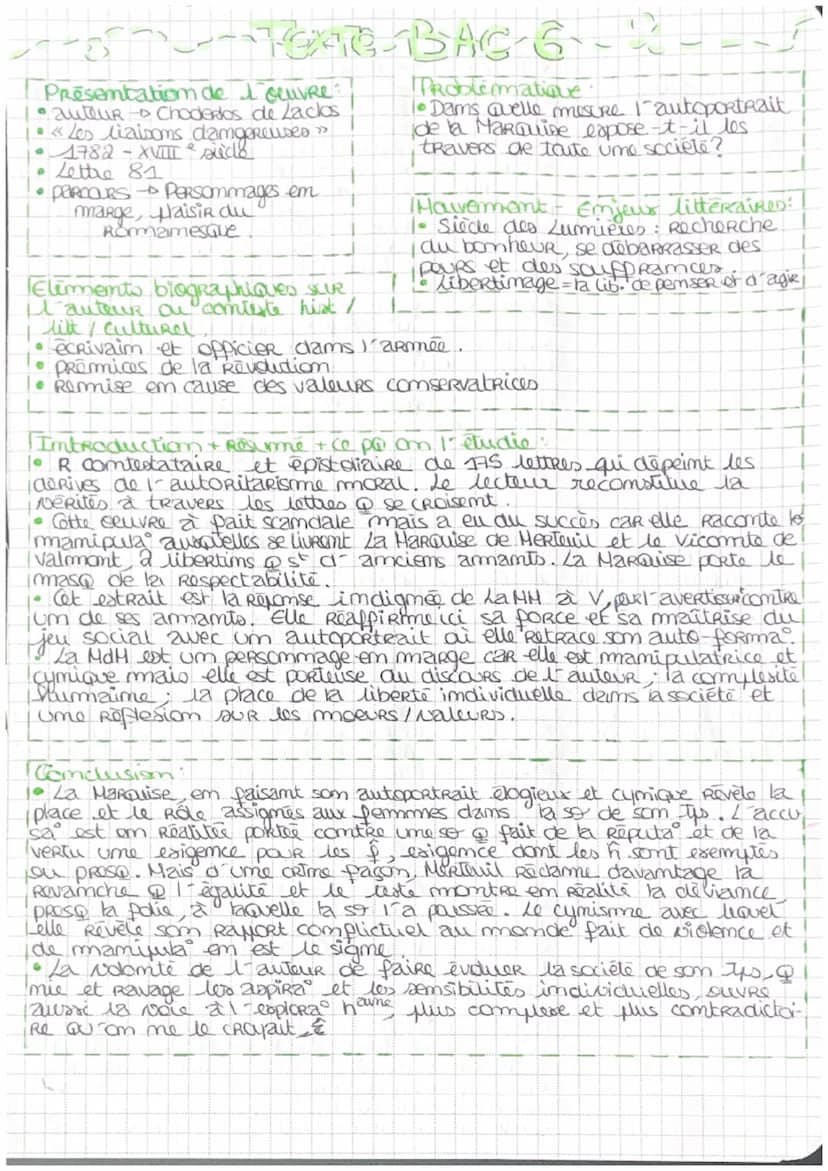 TEXTE BAC 6
Présentation de l'œuvre :
• auteur → Choderlos de Laclos
• « Les liaisons dangereuses »
• 1782 - XVIIIe siècle
• Lettre 81
• parcours → Personnages en
marge, plaisir du
Romanesque.
Problématique :
• Dans quelle mesure l'autoportrait
de la Marquise expose-t-il les
travers de toute une société ?
Mouvement - Enjeux littéraires :
• Siècle des Lumières : Recherche
du bonheur, se débarrasser des
peurs et des souffrances.
• Libertinage = la lib. de penser et d'agir
Eléments biographiques sur
l'auteur ou contexte hist /
litt / culturel
• écrivain et officier dans l'armée.
• prémices de la Révolution
• Remise en cause des valeurs conservatrices
Introduction + Résumé + ce pq on l'étudie :
• R contestataire et épistolaire de 175 lettres qui dépeint les
dérives de l'autoritarisme moral. Le lecteur reconstitue la
vérités à travers les lettres Q se croisent.
• Cette œuvre à fait scandale mais a eu du succès car elle raconte les
manipula° auxquelles se livrent La Marquise de Merteuil et le Vicomte de
Valmont, 2 libertins Q st d'anciens amants. La Marquise porte le
masQ de la Respectabilité.
• Cet extrait est la réponse indignée de La MM à V, pur l'avertissur contre
un de ses amants. Elle Réaffirme ici sa force et sa maîtrise du
jeu social avec un autoportrait où elle retrace son auto-forma°
• La MdM est un personnage en marge car elle est manipulatrice et
cynique mais elle est porteuse du discours de l'auteur ; la complexité
humaine ; la place de la liberté individuelle dans la société et
une Réflexion sur les mœurs / valeurs.
Conclusion :
• La Marquise, en faisant son autoportrait élogieux et cynique Révèle la
place et le Rôle assignés aux femmes dans la st de son Tps. L'accu
sa° est en Réalitée portée contre une st Q fait de la Réputa° et de la
vertu une exigence pour les f, exigence dont les h sont exemptés
ou presq. Mais d'une crtne façon, Merteuil Réclame davantage la
Revanche Q l'égalité et le texte montre en Réalité la déviance,
presq la folie, à laquelle la st l'a poussée. Le cynisme avec lequel
elle Révèle son Rapport conflictuel au monde fait de violence et
de manipula° en est le signe.
• La volonté de l'auteur de faire évoluer la société de son Tps, Q
nie et Ravage les aspira° et les sensibilités individuelles, ouvre
aussi la voie à l'explora° haine, plus complexe et plus contradictoi-
re qu'on ne le croyait.